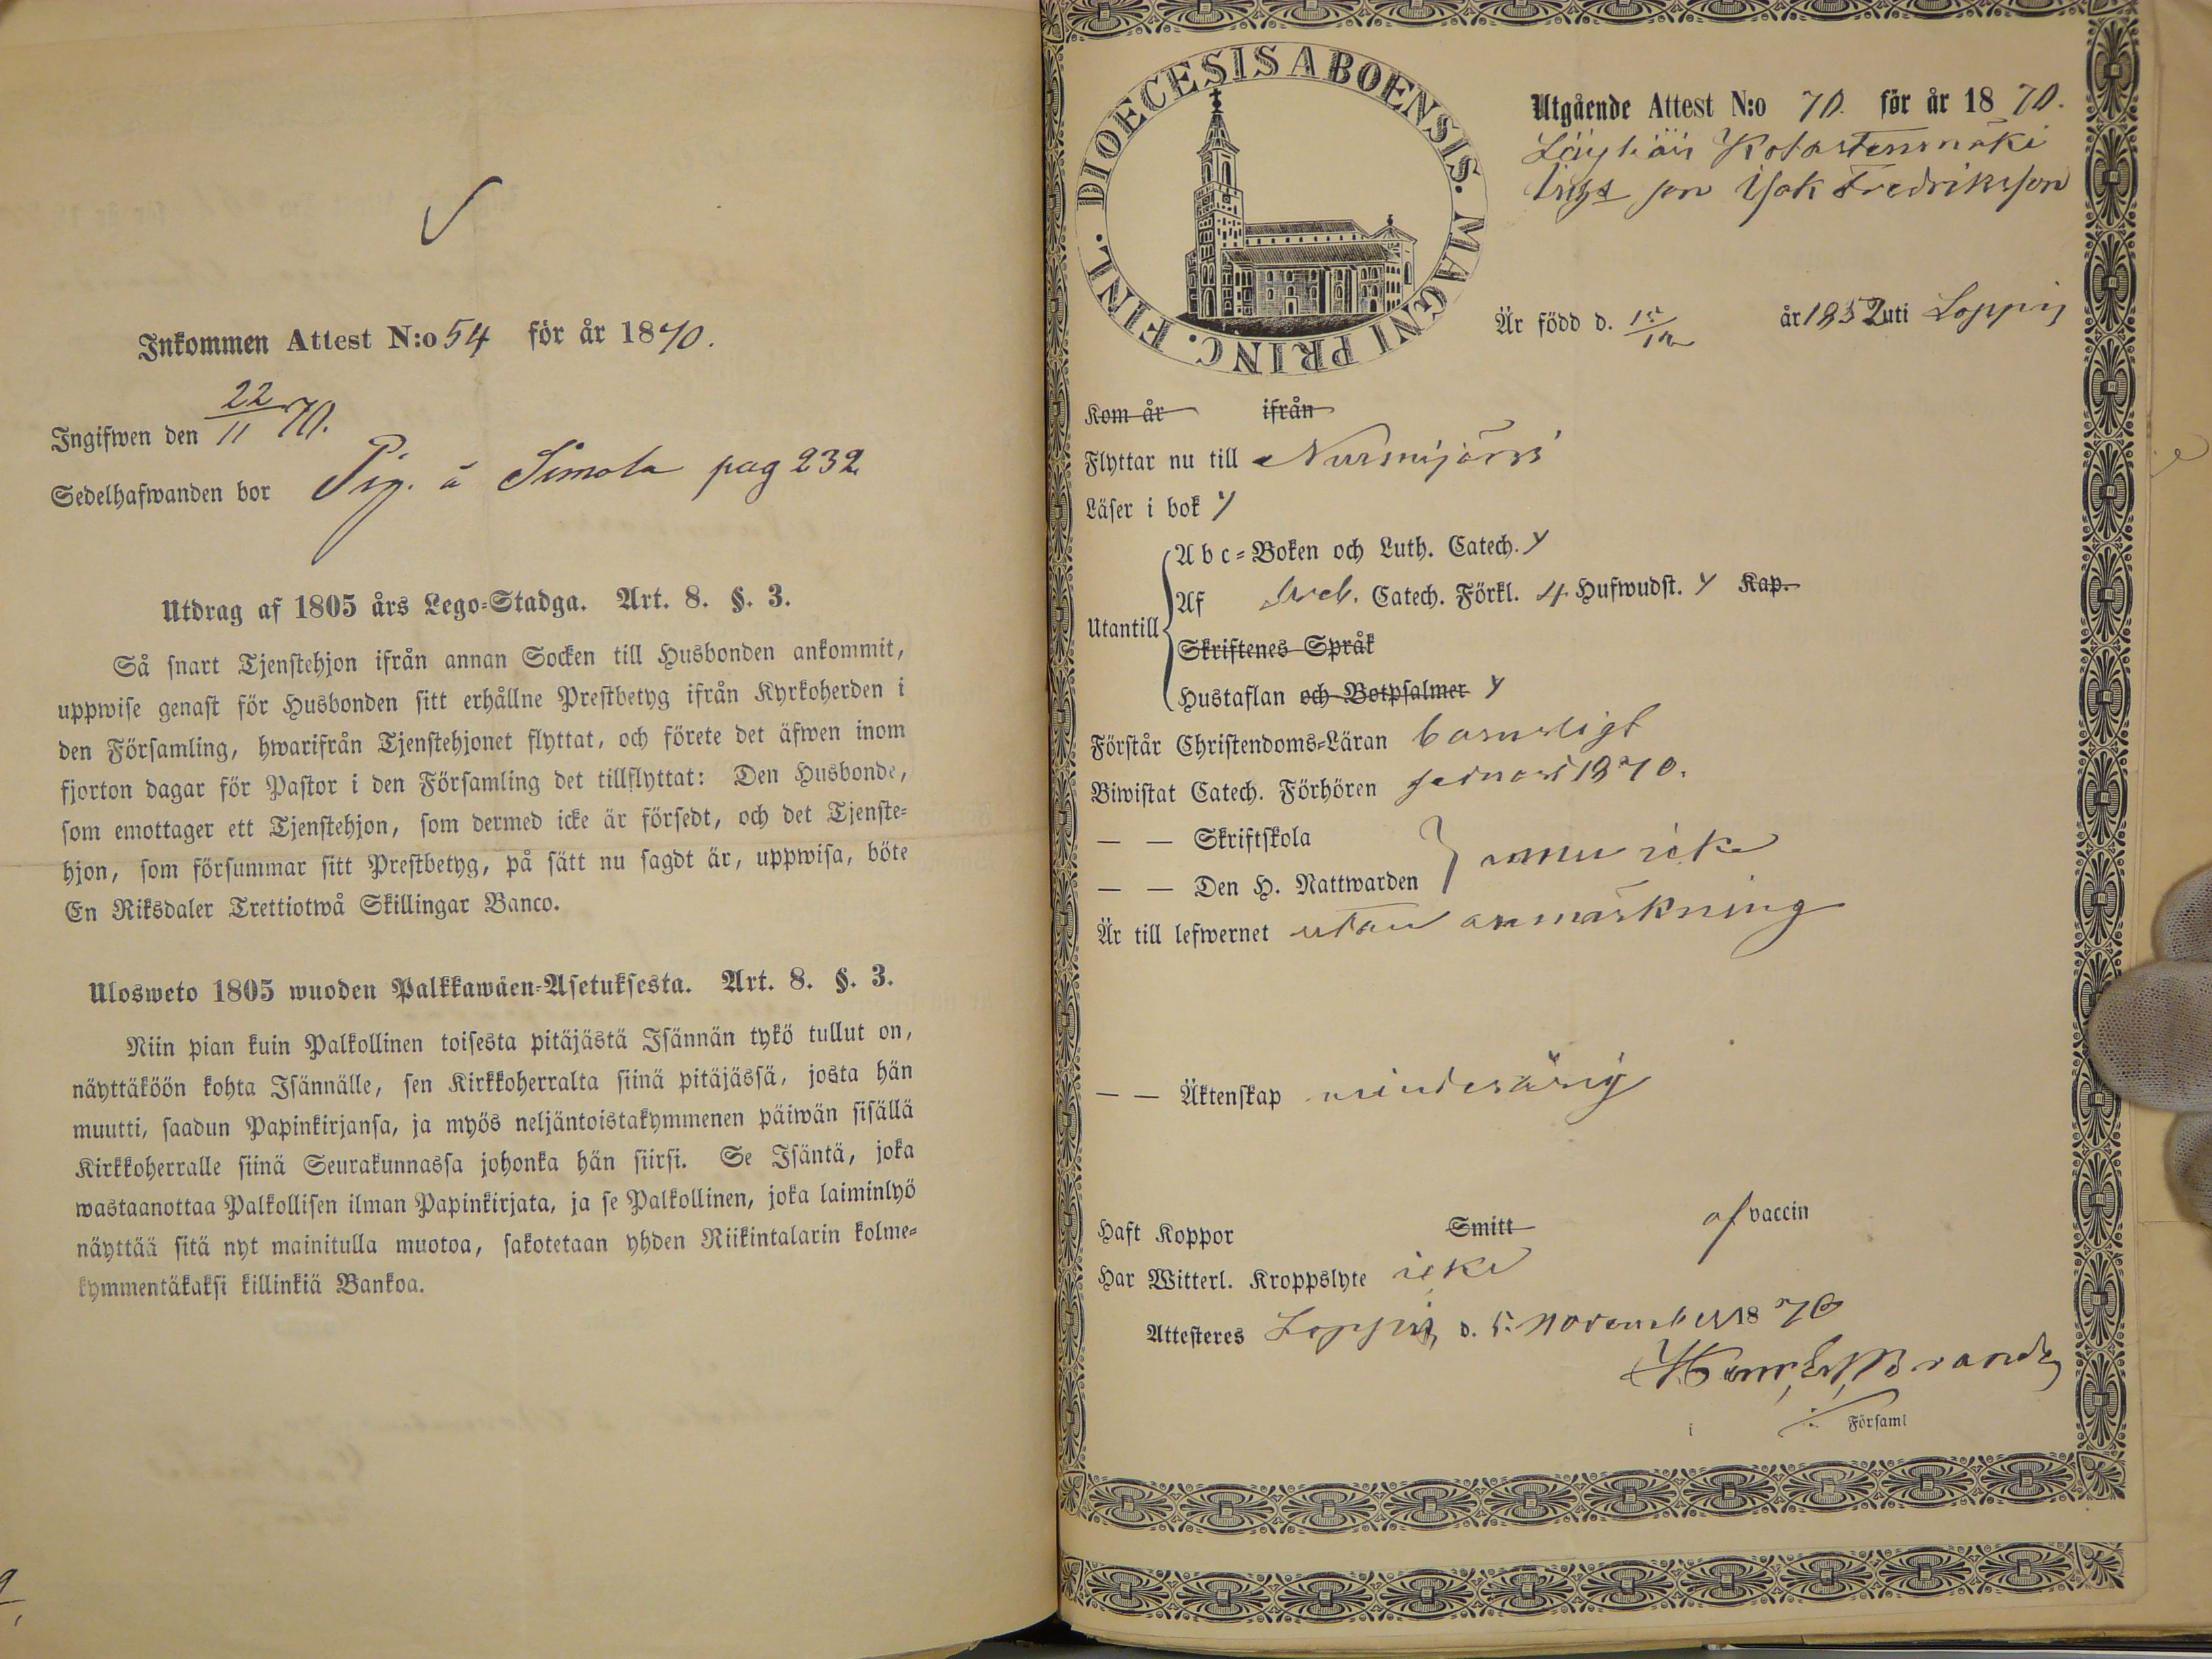 Inkommen Attest N:o 54 för år 1870.
Ingifwen den 22/11 70.
Sedelhafwanden bor Pig. å Simola pag 232
Utdrag af 1805 års Lego-Stadga. Art. 8. §. 3.
Så snart Tjenstehjon ifrån annan Socken till Husbonden ankommit,
uppwise genast för Husbonden sitt erhållne Prestbetyg ifrån Kyrkoherden i
den Församling, hwarifrån Tjenstehjonet flyttat, och förete det äfwen inom
fjorton dagar för Pastor i den Församling det tillflyttat: Den Husbonde,
som emottager ett Tjenstehjon, som dermed icke är försedt, och det Tjenste-
hjon, som försummar sitt Prestbetyg, på sätt nu sagdt är, uppwisa, böte
En Riksdaler Trettiotwå Skillingar Banco.
Ulosweto 1805 wuoden Palkkawäen-Asetuksesta. Art. 8. §. 3.
Niin pian kuin Palkollinen toisesta pitäjästä Isännän tykö tullut on,
näyttäköön kohta Isännälle, sen Kirkkoherralta siinä pitäjässä, josta hän
muutti, saadun Papinkirjansa, ja myös neljäntoistakymmenen päiwän sisällä
Kirkkoherralle siinä Seurakunnassa johonka hän siirsi. Se Isäntä, joka
wastaanottaa Palkollisen ilman Papinkirjata, ja se Palkollinen, joka laiminlyö
näyttää sitä nyt mainitulla muotoa, sakotetaan yhden Riikintalarin kolme-
kymmentäkaksi killinkiä Bankoa.
DIOECESIS ABOENSIS. MAGNI PRINC. FINL.
Utgående Attest N:o 70. för år 1870.
Läyliäis Kolastenmäki
son Isak Fredriksson
Är född d. år 1852 uti Loppis
Kom år ifrån
Flyttar nu till Nurmijärvi
Läser i bok y
Utantill
Abc-Boken och Luth. Catech. y
Af Sveb. Catech. Förkl. 4 Hufwudst. y Kap.
Skriftenes Språk
Hustaflan och Botpsalmer y
Förstår Christendoms-Läran barnsligt
Biwistat Catech. Förhören Januari 1870.
— — Skriftskola
— — Den H. Nattwarden } ännu icke
Är till lefwernet utan anmärkning
— — Äktenskap minderårig
Haft Koppor Smitt af vaccin
Har Witterl. Kroppslyte icke
Attesteres Loppis, d. 5. November 1870
i Församl